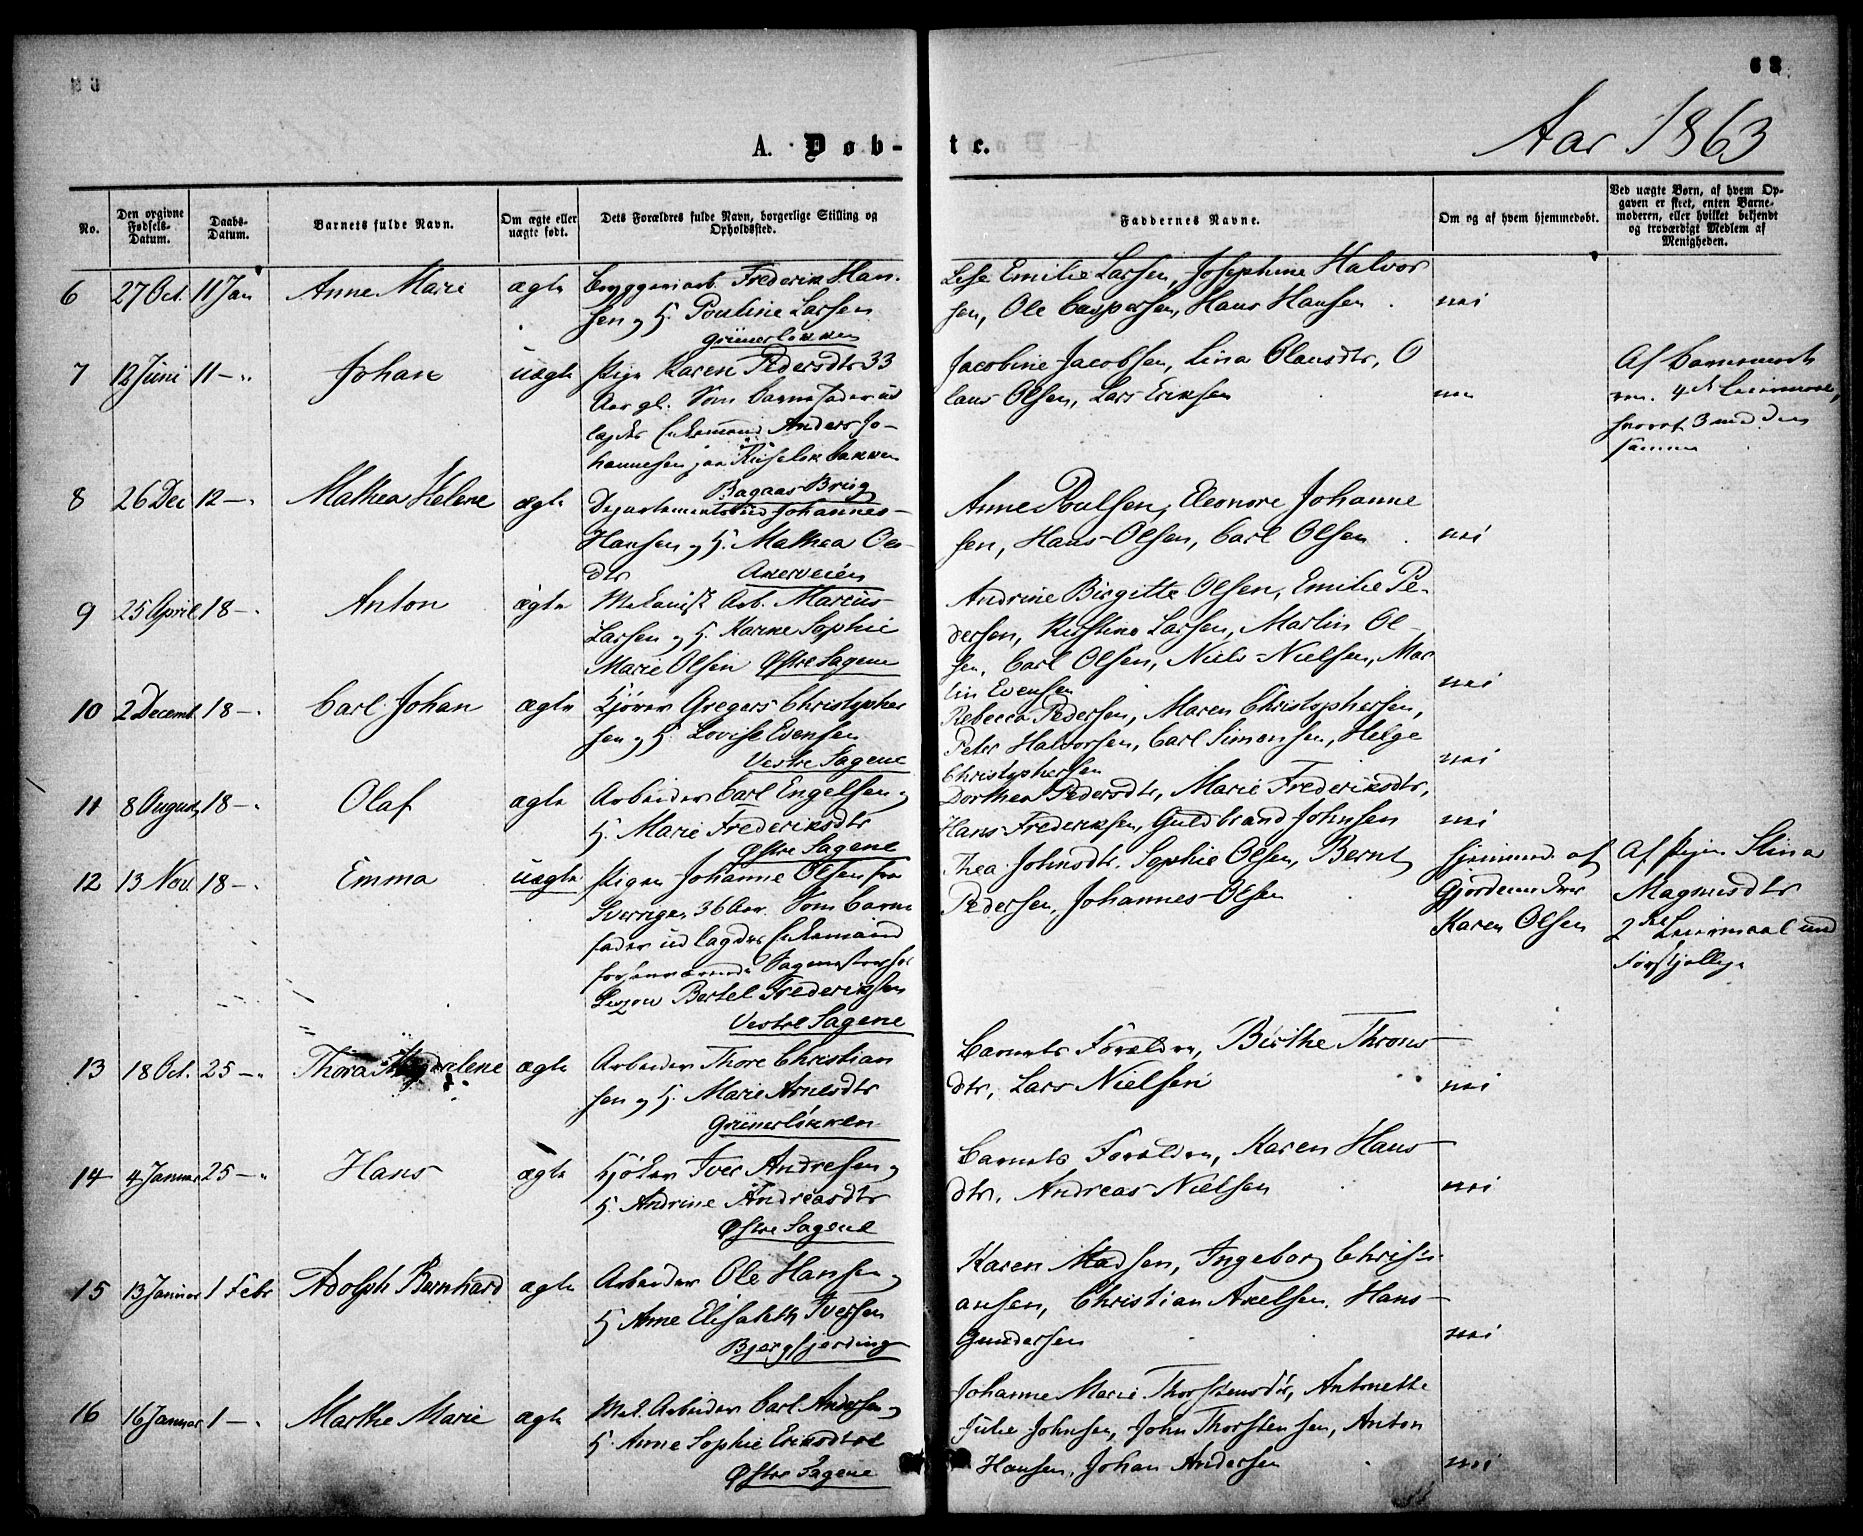 63
Aar 1863
A. Døb-te.
No.
Den opgivne Fødsels-Datum.
Daabs-Datum.
Barnets fulde Navn.
Om ægte eller uægte født.
Dets Forældres fulde Navn, borgerlige Stilling og Opholdssted.
Faddernes Navne.
Om og af hvem hjemmedøbt.
Ved uægte Børn, af hvem Opgaven er skeet, enten Barnemoderen, eller hvilket bekjendt og troværdigt Medlem af Menigheden.
6 27 Oct. 11 Jan Anne Marie ægte Bryggeriarb. Frederik Han-
sen og H. Pauline Larsen
Grünerløkken
Lise Emilie Larsen, Josephine Halvor
sen, Ole Caspersen, Hans Hansen
nei
7 12 Juni 11 -"- Johan uægte Pige Karen Pedersdtr 33
Aar gl. Som Barnefader ud
lagdes Enkemand Anders Jo-
hannesen paa
Jacobine Jacobsen, Lina Olausdtr, O
laus Olsen, Lars Eriksen
nei
Af Barnemode
ren. 4de Leiermaal,
hvoraf 3 med den
samme
8 26 Dec 12 -"- Mathea Helene ægte
Departementsbud Johannes
Hansen og H. Mathea Ols-
dtr Akerveien
Anne Poulsen, Eleonore Johanne
sen, Hans Olsen, Carl Olsen
nei
9 25 April 18 -"- Anton ægte Mekanisk Arb. Marcus
Larsen og H. Karine Sophie
Marie Olsen Østre Sagene
Andrine Birgitte Olsen, Emilie Pe-
dersen, Kirstine Larsen, Martin Ol-
sen, Carl Olsen, Niels Nielsen, Mar
tin Evensen
nei
10 2 Decemb. 18 -"- Carl Johan ægte Kjører Gregers Christopher
sen og H. Lovise Evensen
Vestre Sagene
Rebecca Pedersen, Maren Christophersen,
Peter Halvorsen, Carl Simonsen, Helge
Christophersen
nei
11 8 August 18 -"- Olaf ægte Arbeider Carl Engelsen og
H. Marie Frederiksdtr
Østre Sagene
Dorthea Pedersdtr, Marie Frederiksdtr,
Hans Frederiksen, Guldbrand Johnsen
nei
12 13 Nov. 18 -"- Emma uægte Pigen Johanne Olsen fra
Sverrige, 36 Aar. Som Barne
fader udlagdes Enkemand
Bertel Frederiksen
Vestre Sagene
Thea Johnsdtr, Sophie Olsen, Bernt
Pedersen, Johannes Olsen
Hjemmed. af
Gjordemoder
Karen Olsen
Af Pigen Stina
Magnusdtr
2det Leiermaal med
forskjellige
13 18 Oct. 25 -"- Thora ægte Arbeider Thore Christian
sen og H. Marie Arnesdtr
Grünerløkken
Barnets Forældre, Birthe Throns
dtr, Lars Nielsen
nei
14 4 Januar 25 -"- Hans ægte Iver Andresen og
H. Andrine Andreasdtr
Østre Sagene
Barnets Forældre, Karen Hans
dtr, Andreas Nielsen
nei
15 13 Januar 1 Febr Adolph Bernhard ægte Arbeider Ole Hansen og
H. Anne Elisabeth Iversen
Bjergfjerding
Karen Madsen, Ingeborg Christi
ansen, Christian Axelsen, Hans
Gundersen
nei
16 16 Januar 1 -"- Marthe Marie ægte Mek. Arbeider Carl Andersen og
H. Anne Sophie Eriksdtr
Østre Sagene
Johanne Marie Thorstensdtr, Antonette
Julie Johnsen, John Thorstensen, Anton
Hansen, Johan Andersen
nei